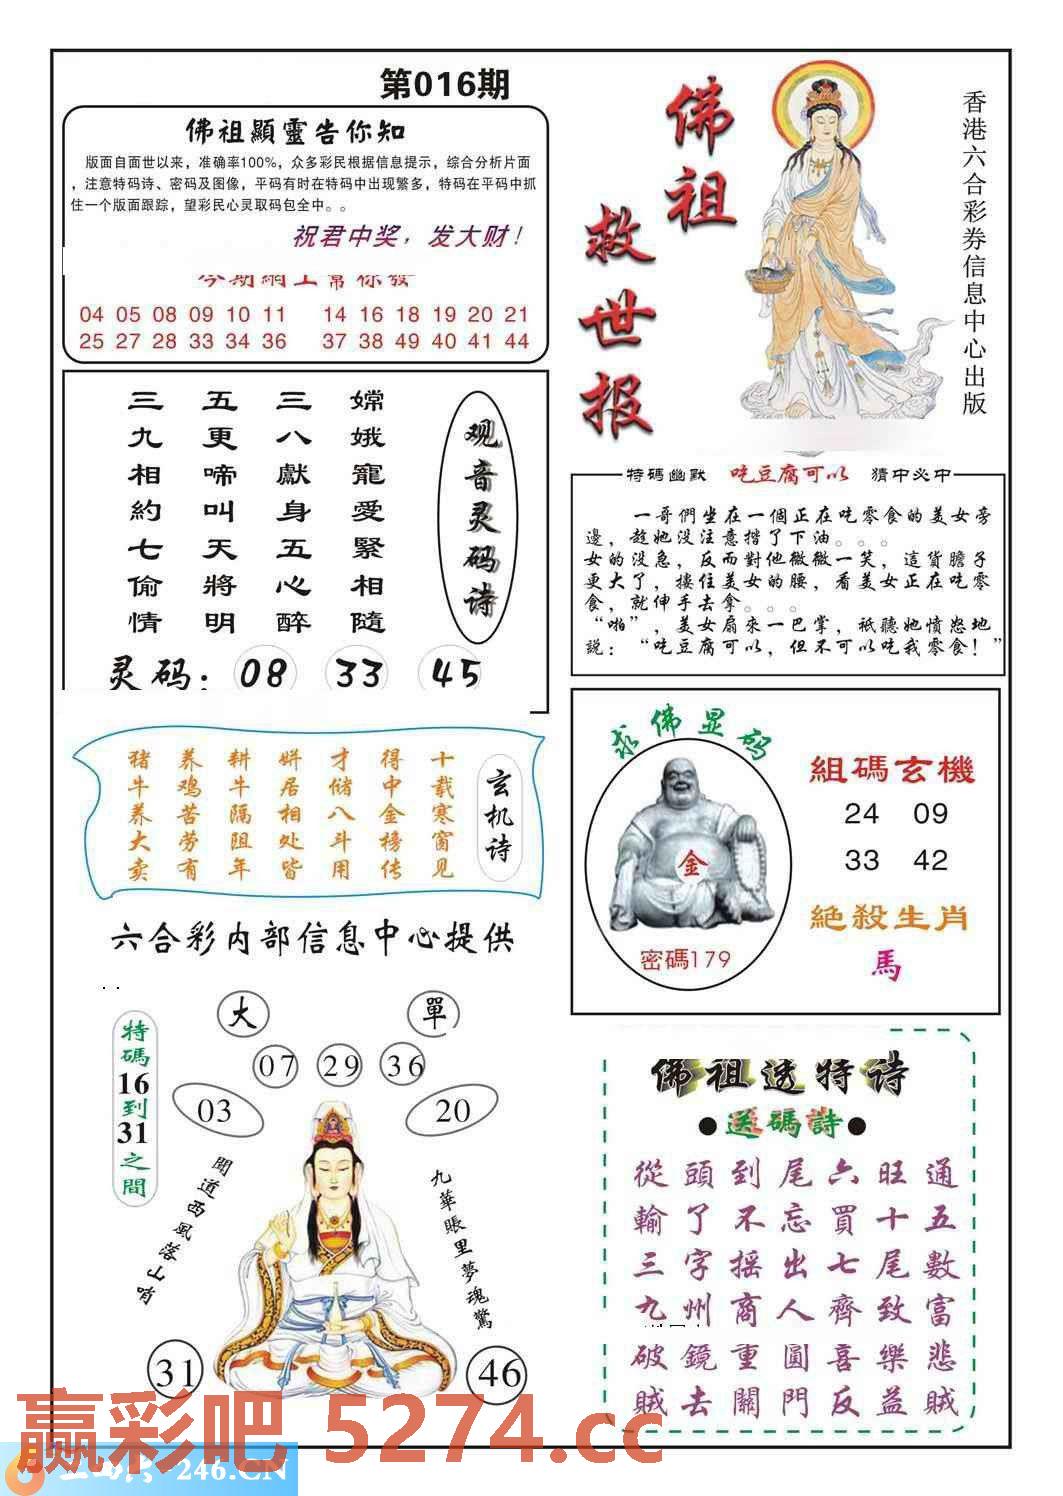 第016期
佛祖顯靈告你知
版面自面世以来，准确率100%，众多彩民根据信息提示，综合分析片面
，注意特码诗、密码及图像，平码有时在特码中出现繁多，特码在平码中抓
住一个版面跟踪，望彩民心灵取码包全中。。
祝君中奖，发大财！
04 05 08 09 10 11 14 16 18 19 20 21
25 27 28 33 34 36 37 38 49 40 41 44
佛祖
救世报
香港六合彩券信息中心出版
观音灵码诗
嫦娥寵愛緊相隨
三八獻身五心醉
五更啼叫天將明
三九相約七偷情
灵码：08 33 45
特碼幽默 吃豆腐可以 猜中必中
一哥們坐在一個正在吃零食的美女旁
邊，趁她没注意揩了下油。。。
女的没急，反而對他微微一笑，這貨膽子
更大了，摟住美女的腰，看美女正在吃零
食，就伸手去拿。。。
“啪”，美女扇來一巴掌，祇聽她憤怒地
説：“吃豆腐可以，但不可以吃我零食！”
玄机诗
十载寒窗见
得中金榜传
才储八斗用
姘居相处皆
耕牛隔阻年
养鸡苦劳有
猪牛养大卖
求佛显码
金
密碼179
組碼玄機
24 09
33 42
絕殺生肖
馬
六合彩内部信息中心提供
特碼16到31之間
大 單
07 29 36
03 20
聞道西風落山哨
九華賬里夢魂驚
31 46
佛祖透特诗
●送碼詩●
從頭到尾六旺通
輸了不忘買十五
三字摇出七尾數
九州商人齊致富
破鏡重圓喜樂悲
賊去關門反益賊
赢彩吧 5274.cc
246.CN